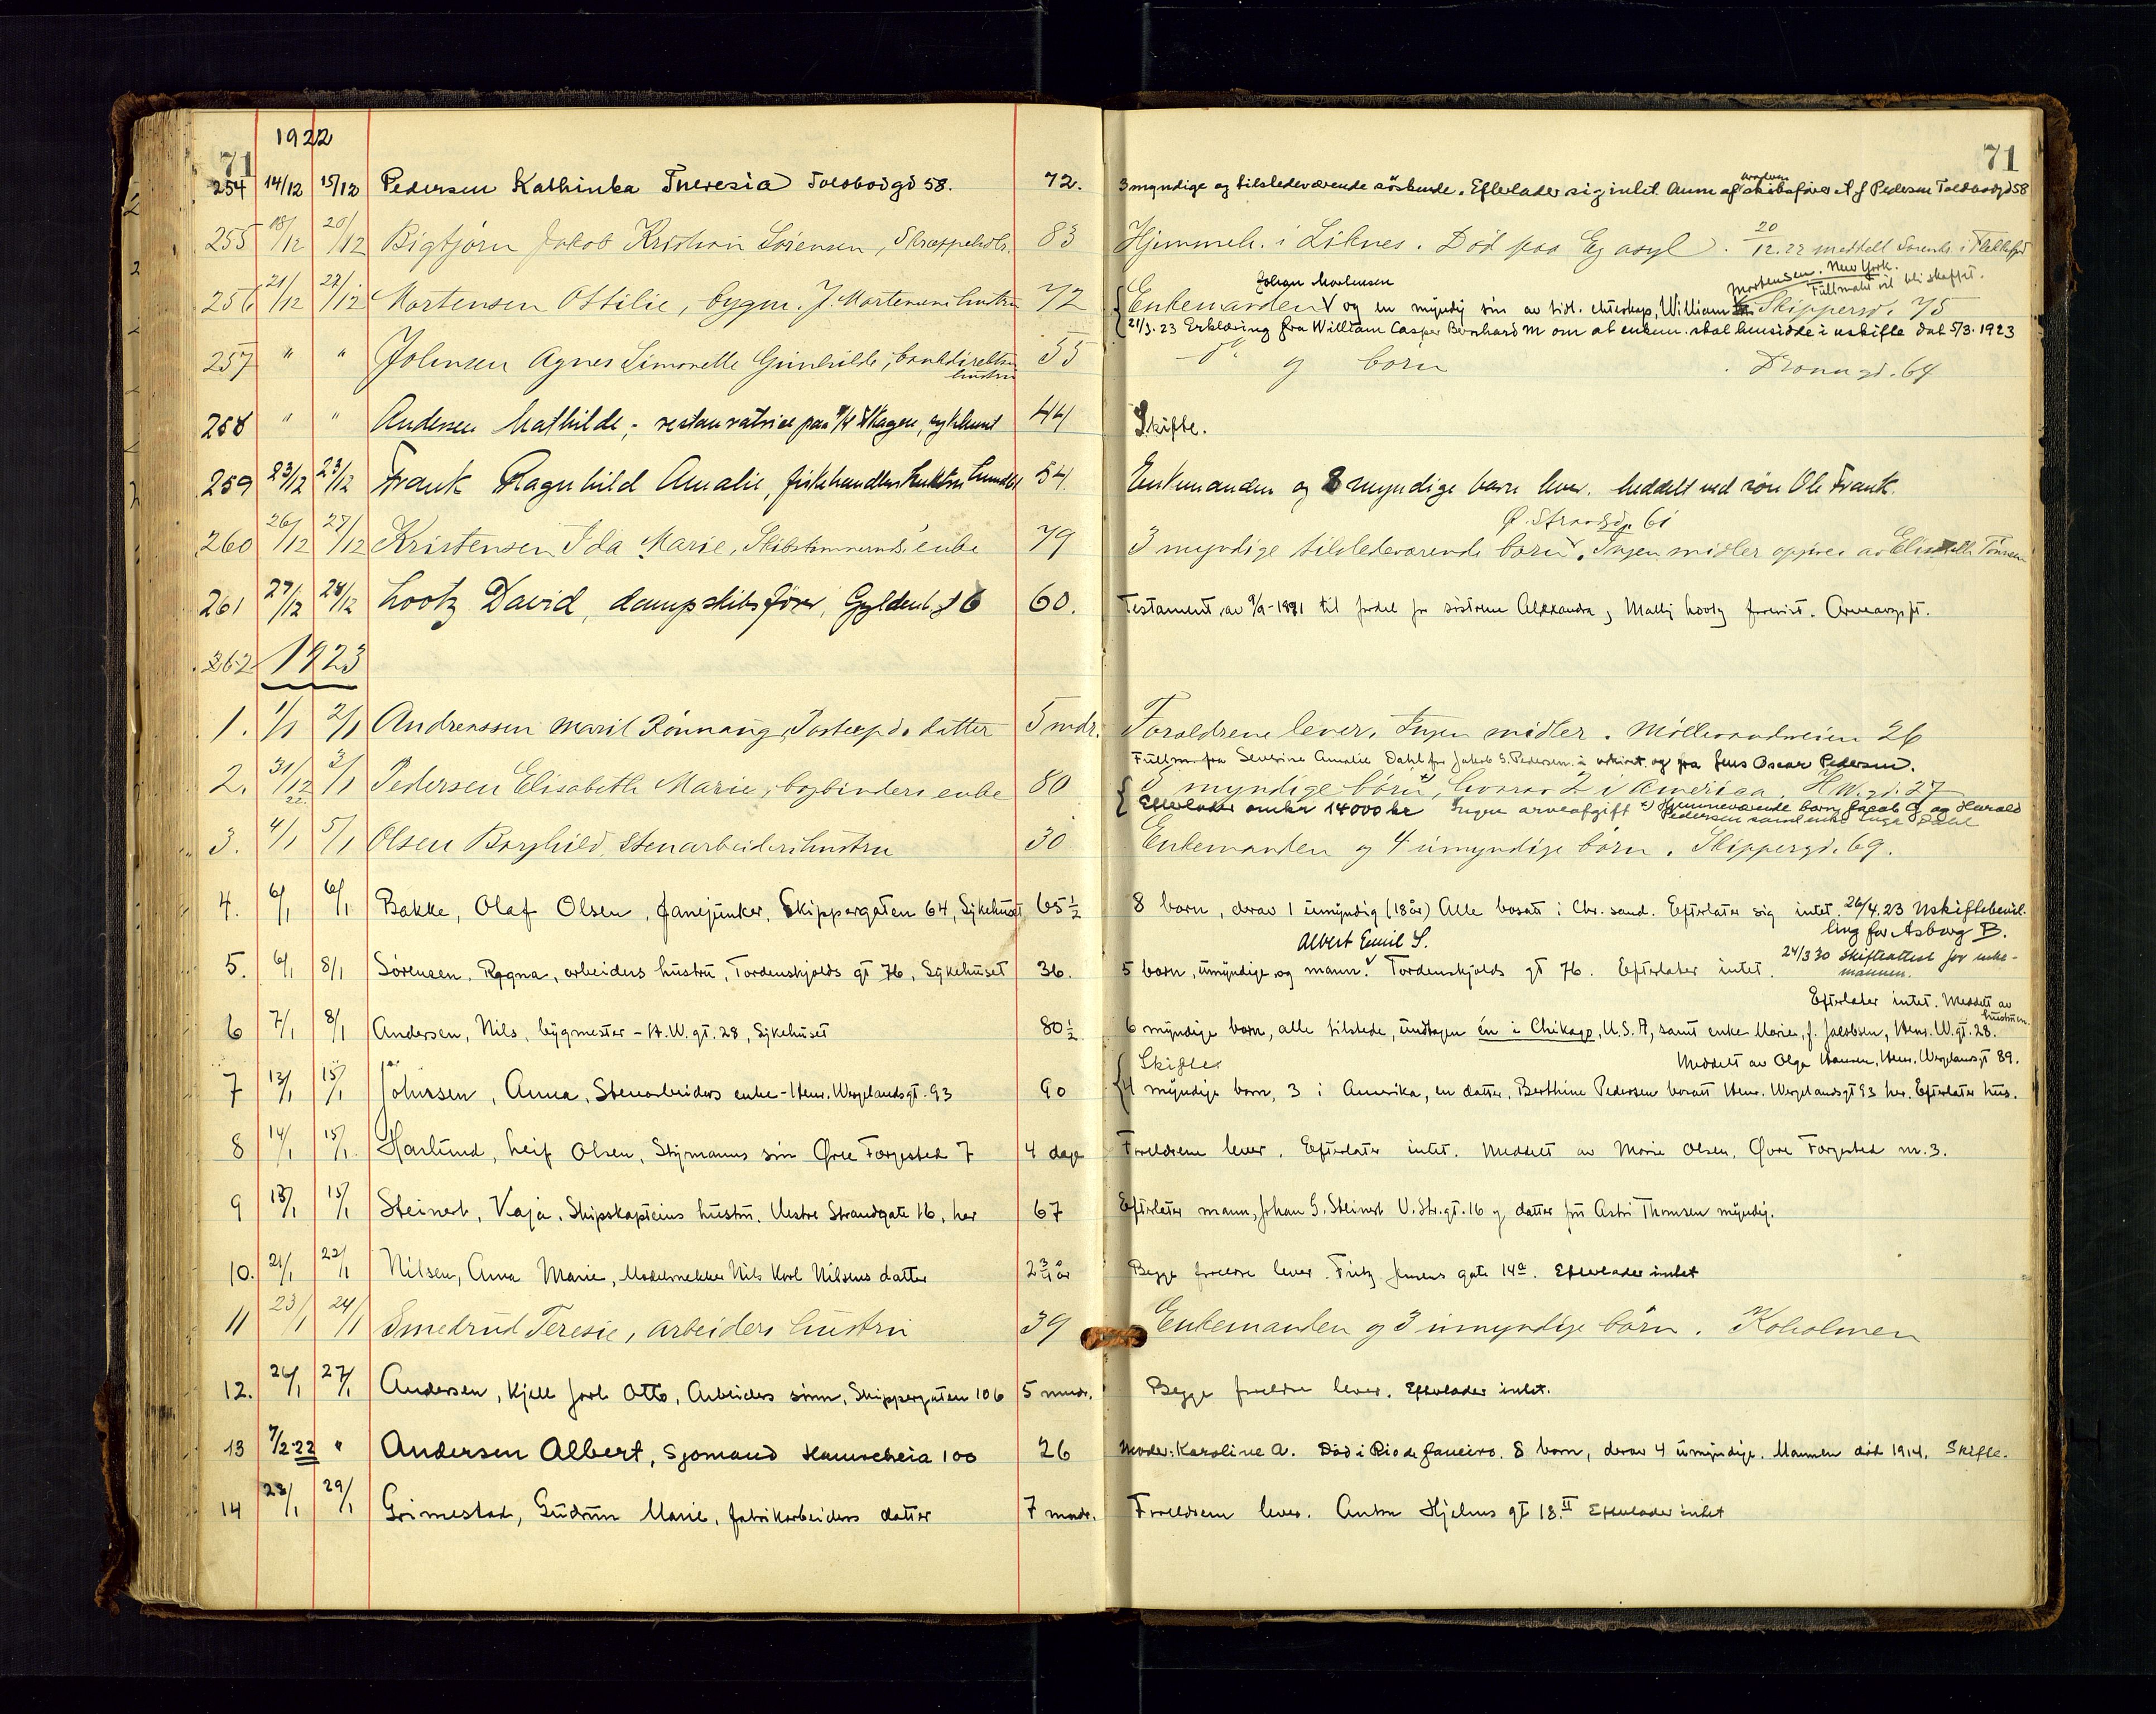 1922
71
71
254 14/12 15/12 Pedersen Kathinka Theresia Toldbodgd 58. 72. 3 myndige og tilstedeværende søskende. Efterlader sig intet. Anm af broderen skibsfører A J Pedersen Toldbodgd 58
255 18/12 20/12 Bigtjørn Jakob Kristian Sørensen, 83 Hjemmeh. i Liknes. Død paa Eg asyl. 20/12.22 meddelt Sorensk. i Flekkefjord
Johan Mortensen Mortensen. New York.
Fullmakt vil bli skaffet.
256 21/12 22/12 Mortensen Ottilie, bygm. J. Mortensens hustru 72 Enkemanden V og en myndig søn av tidl. ekteskap, William Skippergd. 75
21/3.23 Erklæring fra William Casper Bernhard M om at enkem. skal hensidde i uskifte dat 5/3.1923
257 " " Johnsen Agnes Simonette Gunhilde, bankdirektør hustru 55 og børn Dronn.gd. 64
258 " " Andersen Mathilde, restauratrice paa Skagen, sykehuset 44 Skifte.
259 23/12 23/12 Frank Ragnhild Amalie, fiskehandlers hustru Lunde 54 Enkemanden og 8 myndige børn lever. Meddelt ved søn Ole Frank.
Ø. Strandgd. 61
260 26/12 27/12 Kristensen Ida Marie, Skibstømmermds. enke 79 3 myndige tilstedeværende børn. Ingen midler opgives av Tønnesen
261 27/12 28/12 Lootz David, dampskibsfører, Gyldenl. 60. Testament av 9/9-1891 til fordel for søstrene Alexandra og Mally Lootz forevist. Arveavgift.
262 1923
1. 1/1 2/1 Andreassen Marit Rönnaug, Postexpd. datter 5 mdr. Forældrene lever. Ingen midler. Møllevandveien 26
Fullm. fra Severine Amalie Dahl for Jakob S. Pedersen i arkivet og fra Jens Oscar Pedersen.
2. 31/12 22. 3/1 Pedersen Elisabeth Marie, bogbinders enke 80 myndige børn, hvorav 2 i Amerika. H.W.gd. 27
Efterlader omkr 14000 kr Ingen arveafgift Hjemmeværende børn Jacob G og Harald
Pedersen samt enke Inga Dahl
3. 4/1 5/1 Olsen Borghild, Stenarbeiders hustru 30 Enkemanden og 4 umyndige børn. Skippergd. 69.
4. 6/1 6/1 Bakke, Olaf Olsen, fanejunker, Skippergaten 64, Sykehuset 65 1/2 8 barn, derav 1 umyndig (18 år) Alle bosatt i Chr.sand. Efterlater sig intet. 26/4.23 Uskiftebevil-
ling for Asborg B.
Albert Emil S.
5. 6/1 8/1 Sørensen, Ragna, arbeiders hustru, Tordenskjolds gt 76, Sykehuset 36. 5 barn, umyndige og mann. V Tordenskjolds gt 76. Efterlater intet. 24/3 30 Skifteattest for enke-
mannen.
Efterlater intet. Meddelt av
hustruen.
6 7/1 8/1 Andersen, Nils, bygmester – H.W. gt. 28, Sykehuset 80 1/2 6 myndige barn, alle tilstede, undtagen én i Chikago, U.S.A, samt enke Marie, f. Jacobsen, Henr. W. gt. 28.
Skifte. Meddelt av Olga Hansen, Henr. Wergelandsgt 89.
7 13/1 15/1 Johnsen, Anna, Stenarbeiders enke – Henr. Wergelandsgt. 93 90 4 myndige barn, 3 i Amerika, en datter, Berthine Pedersen bosatt Henr. Wergelandsgt 93 her. Efterlater hus.
8 14/1 15/1 Harlund, Leif Olsen, Styrmanns søn Øvre Torgested 7 4 dage Foreldrene lever. Efterlater intet. Meddelt av Marie Olsen, Øvre Torgested nr. 3.
9 13/1 15/1 Steinert, Kaja, Skipskapteins hustru. Vestre Strandgate 16, her 67 Efterlater mann, Johan G. Steinert V. Str. gt. 16 og datter fru Astri Thomsen myndig.
10. 21/1 22/1 Nilsen, Anna Marie, Modelsnekker Nils Karl Nilsens datter 2 3/4 år Begge foreldre lever. Fritz Jensens gate 14a. Efterlader intet
11 23/1 24/1 Smedrud Teresie, arbeiders hustru 39 Enkemanden og 3 umyndige børn. Koholmen
12. 26/1 27/1 Andersen, Kjell Jarl Otto, Arbeiders sønn, Skippergaten 106 5 mndr. Begge foreldre lever. Efterlader intet.
13 7/2 22 " Andersen Albert, Sjømand Hamreheia 100 26 Moder: Karoline A. Død i Rio de Janeiro. 8 barn, derav 4 umyndige. Mannen død 1914. Skifte.
14 28/1 29/1 Grimestad, Gudrun Marie, fabrikarbeiders datter 7 mndr. Foreldrene lever. Anton Hjelms gt 18.II Efterlader intet